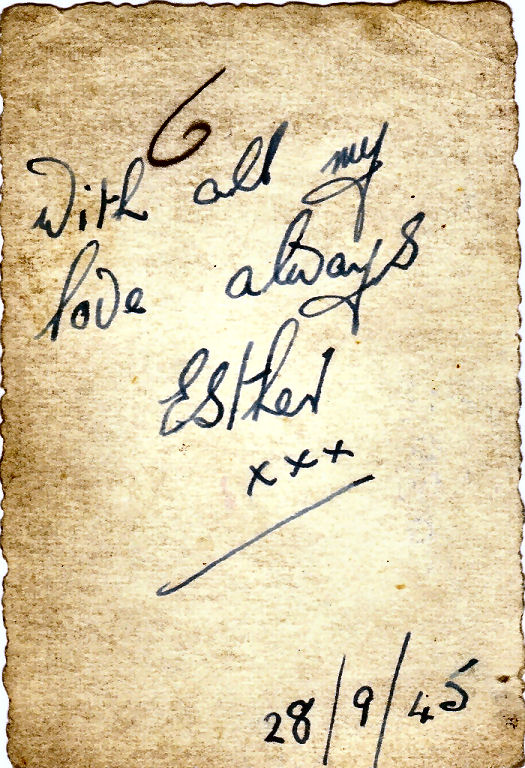 6
With all my
love always
Esther
xxx
28/9/45